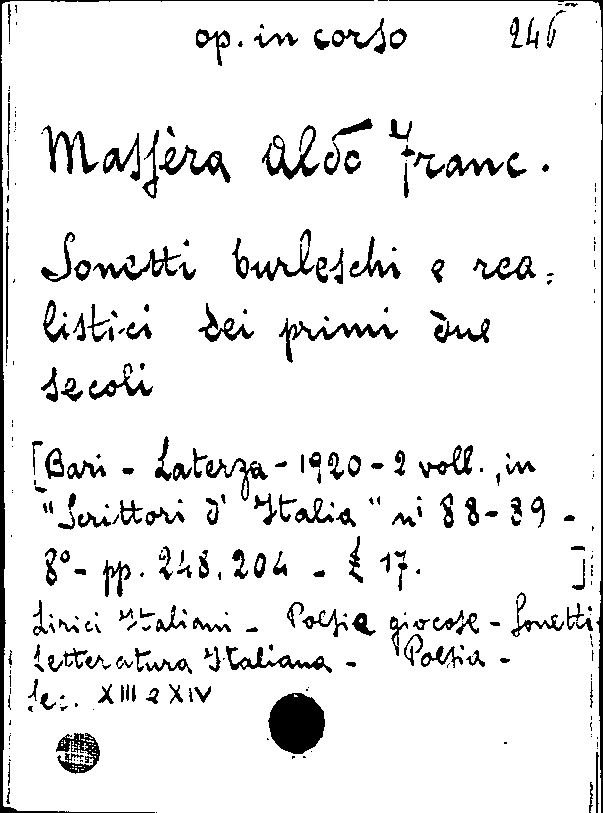 op. in corso 246
Massèra Aldo Franc.
Sonetti burleschi e rea=
listici dei primi due
secoli
[Bari - Laterza - 1920 - 2 voll., in
"Scrittori d'Italia" ni 88-89 -
8° - pp. 248, 204 - £ 17. ]
Lirici Italiani - Poesia giocose - Sonetti
Letteratura Italiana - Poesia -
Sec. XIII e XIV